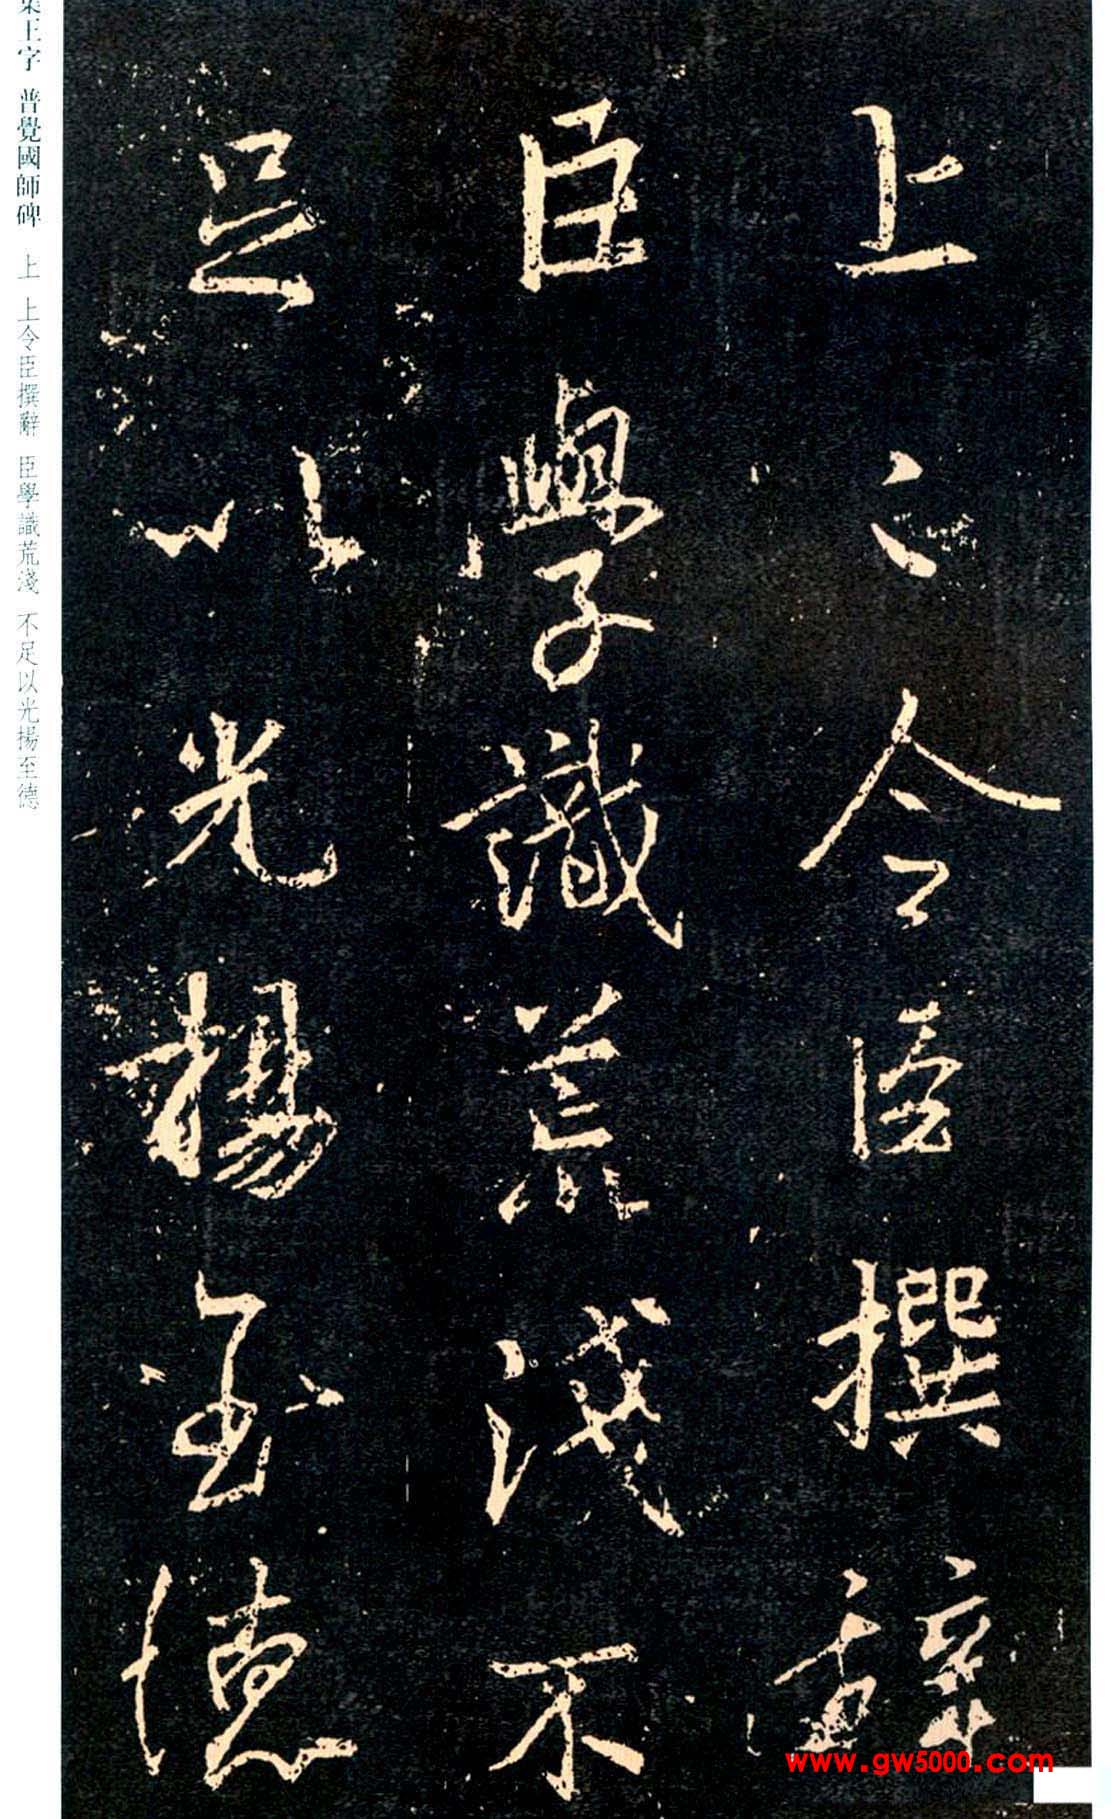 上〻令臣撰辭
臣學識荒淺不
足以光揚至德
集王字 普覺國師碑 上 上令臣撰辭 臣學識荒淺 不足以光揚至德
www.gw5000.com